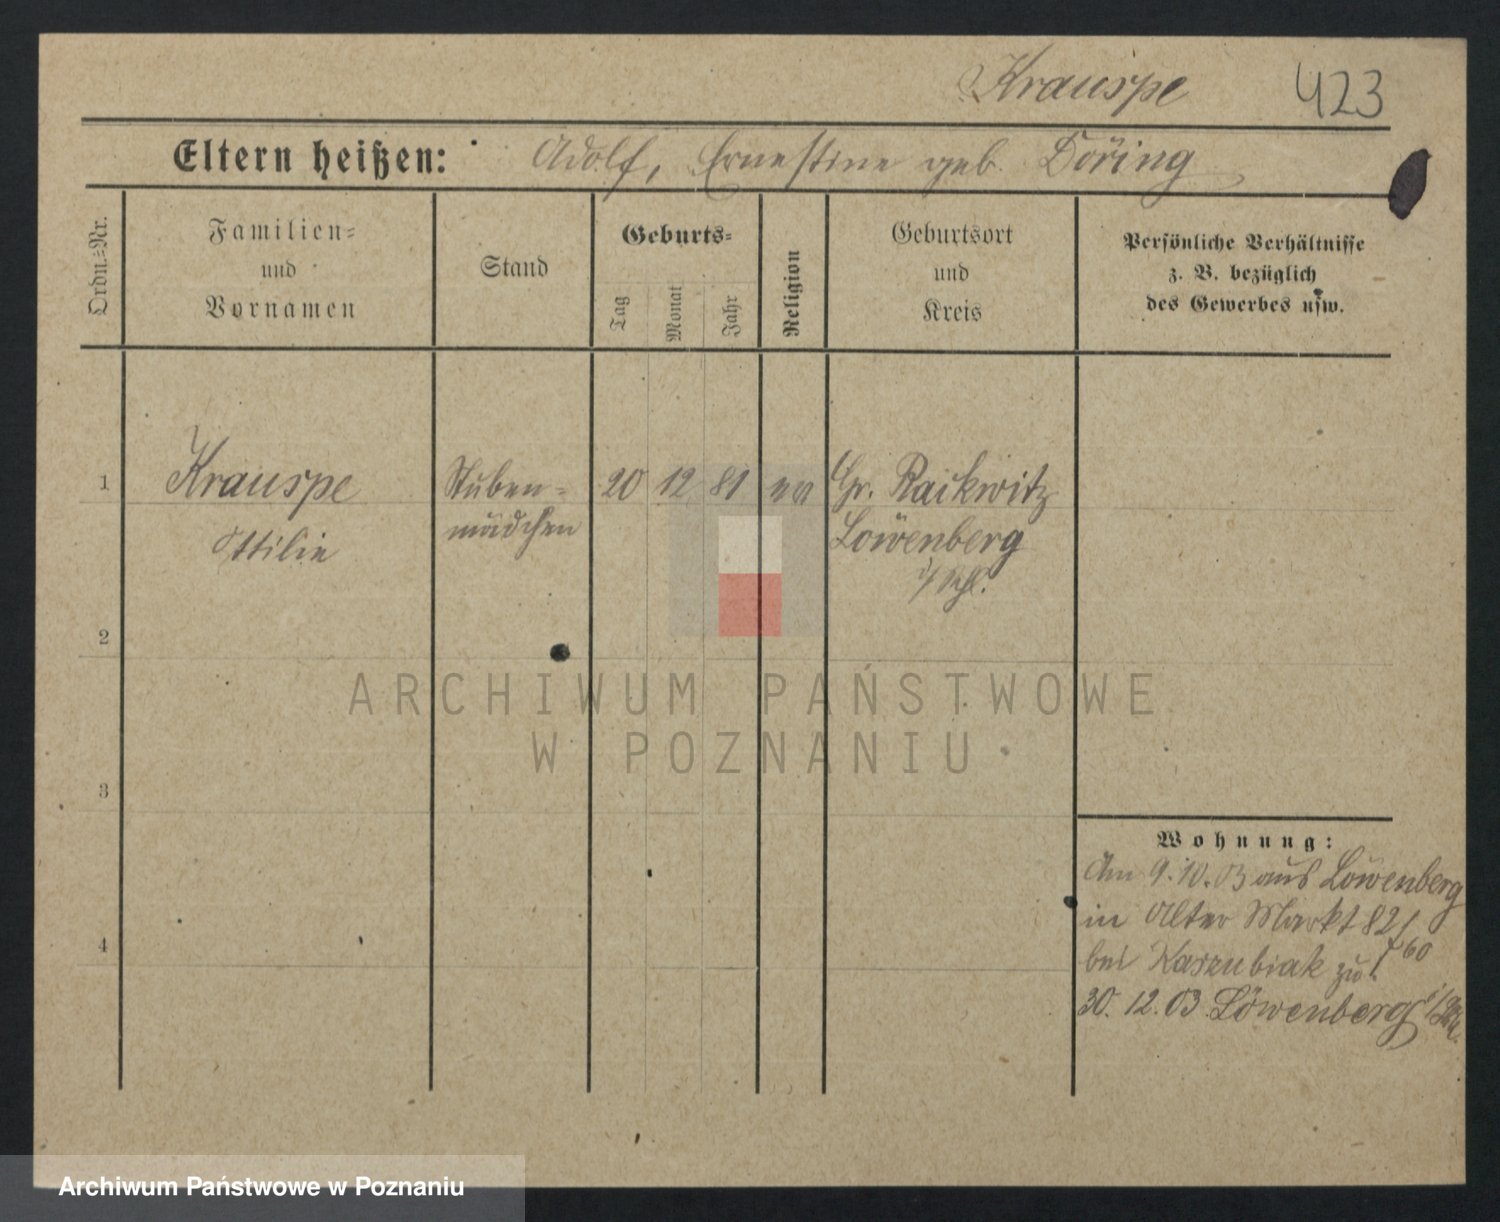 Krauspe 423
Eltern heißen: Adolf, Ernestine geb. Döring
Ordn.=Nr.
Familien=
und
Vornamen
Stand
Geburts=
Tag
Monat
Jahr
Religion
Geburtsort
und
Kreis
Persönliche Verhältnisse
z. B. bezüglich
des Gewerbes usw.
1 Krauspe Stuben= 20 12 81 ev Gr. Rackwitz
Ottilie mädchen Löwenberg
i/Schl.
2
ARCHIWUM PAŃSTWOWE
W POZNANIU
3
Wohnung:
Am 9.10.03 aus Löwenberg
in Alter Markt 82/
bei Kaszubiak zu. 60
4
30.12.03 Löwenberg i/Schl.
Archiwum Państwowe w Poznaniu